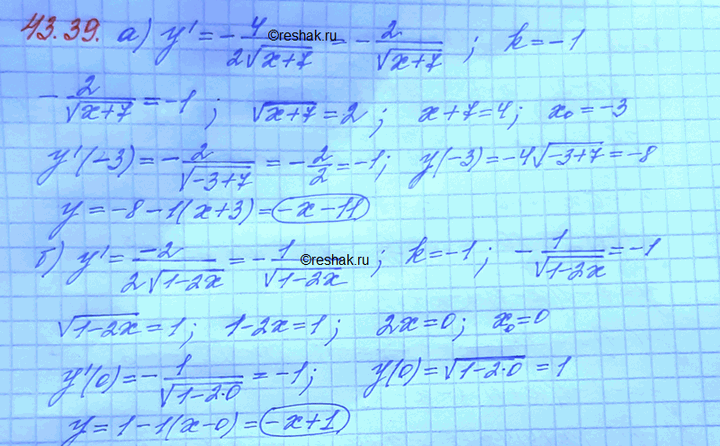 43.39. а) y' = -4/(2√(x+7)) = -2/√(x+7) ; k = -1
©reshak.ru
-2/√(x+7) = -1 ; √(x+7) = 2 ; x+7=4; x₀ = -3
y'(-3) = -2/√(-3+7) = -2/2 = -1; y(-3) = -4√(-3+7) = -8
y = -8 -1(x+3) = -x-11
б) y' = -2/(2√(1-2x)) = -1/√(1-2x) ; k = -1 ; -1/√(1-2x) = -1
©reshak.ru
√(1-2x) = 1 ; 1-2x=1 ; 2x=0; x₀=0
y'(0) = -1/√(1-2·0) = -1; y(0) = √(1-2·0) = 1
y = 1-1(x-0) = -x+1